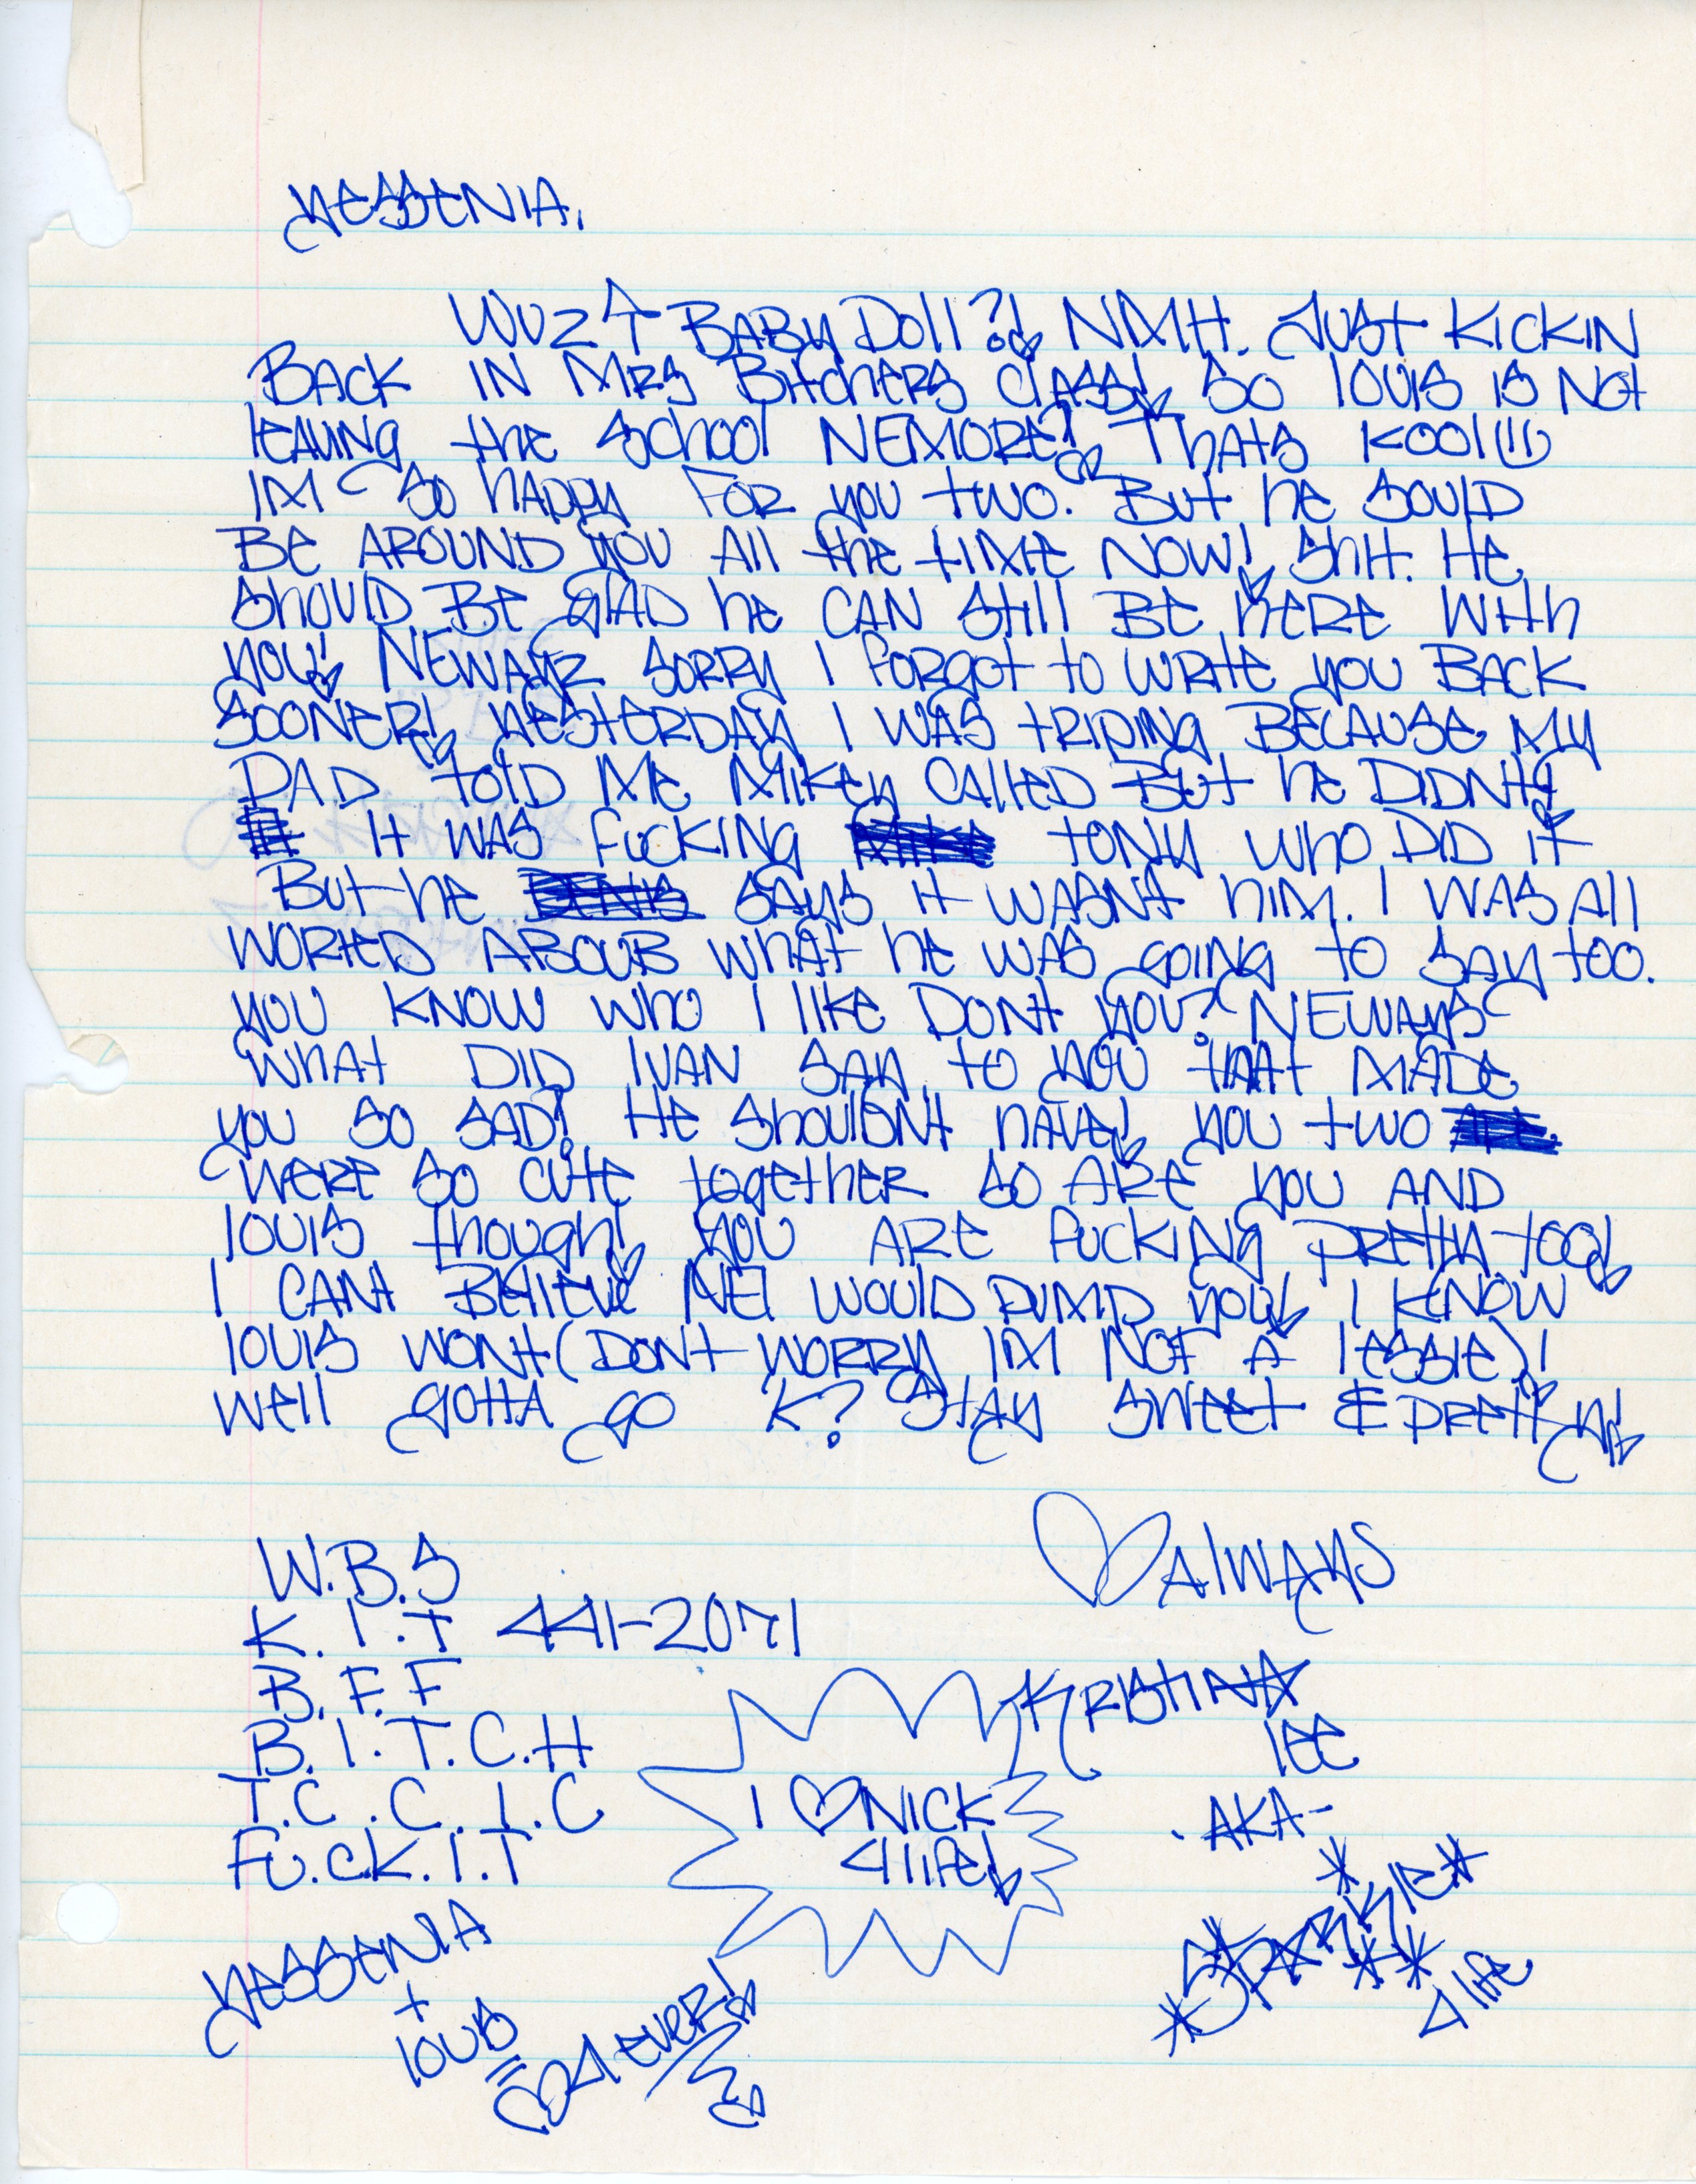 Yessenia,
Wuz ↑ Baby Doll?! NMH. Just kickin
back in Mrs Bitchers class! So Louis is not
leaving the school nemore? Thats kool!!!
Im so happy for you two. But he sould
be around you all the time now! Shit. He
should be glad he can still be here with
you! Newayz sorry I forgot to write you back
sooner! Yesterday I was triping because my
dad told me Mikey called but he didnt!
It was fucking Tony who did it
But he says it wasnt him. I was all
woried aboub what he was going to say too.
You know who I like dont you? Neways
what did Ivan say to you that made
you so sad? He shouldnt have! You two
were so cute together so are you and
Louis though! You are fucking pretty too!
I cant believe would dump you! I know
Louis wont (Dont worry Im not a lessie)!
Well gotta go K? Stay sweet & pretty!
♡ Always
W.B.S
K.I.T 441-2071
B.F.F
B.I.T.C.H
T.C.C.I.C
Fu.ck.I.T
Kristina
Lee
AKA-
*Sparkle*
4 life
I ♡ Nick
4 life!
Yessenia
+
Louis
= ♡ 4 ever!